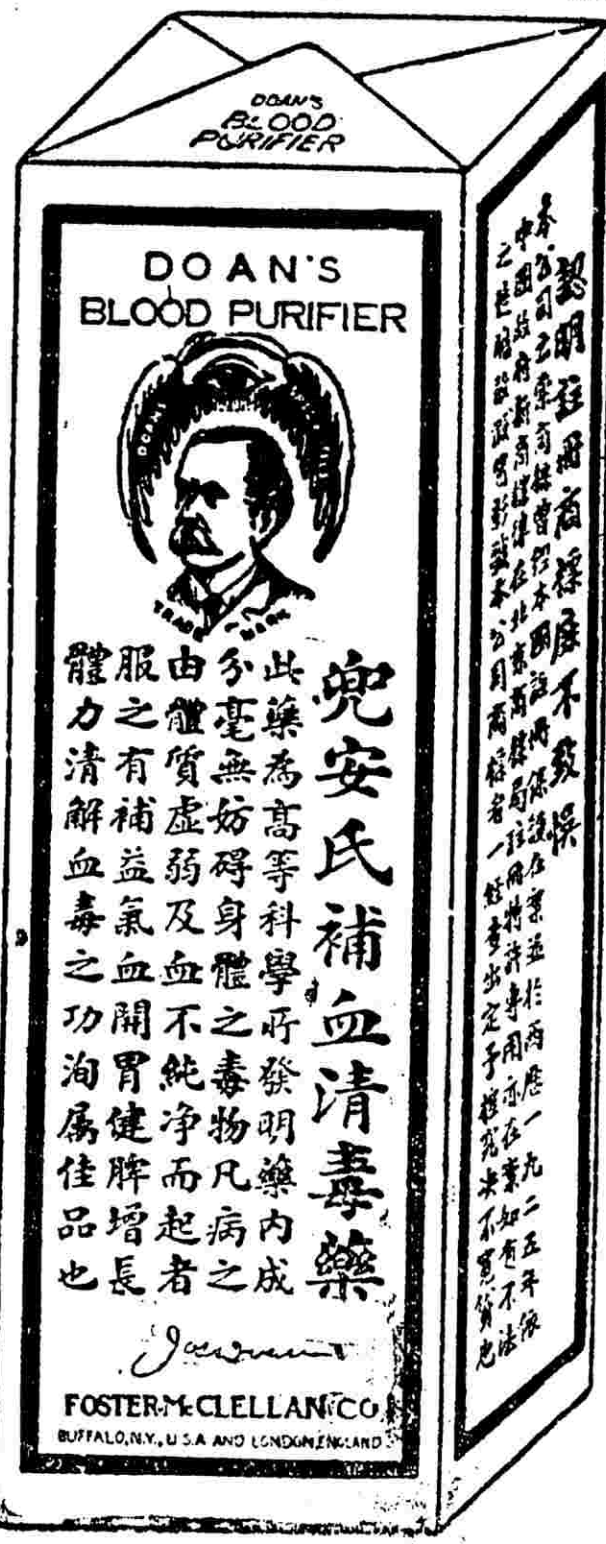 DOAN'S
BLOOD
PURIFIER
DOAN'S
BLOOD PURIFIER
DOANS
TRADE MARK
兜安氏補血清毒藥
此藥為高等科學所發明藥內成
分毫無妨碍身體之毒物凡病之
由體質虛弱及血不純净而起者
服之有補益氣血開胃健脾增長
體力清解血毒之功洵属佳品也
FOSTER-McCLELLAN CO
BUFFALO, N.Y., U.S.A AND LONDON, ENGLAND
認明註冊商標庶不致悞
本公司之藥商標曾經本國註冊保護在案並於西歷一九二五年依
中國政府新商標律在北京商標局註冊特許專用亦在案如有不法
之徒胆敢冒影戤本公司商標者一經查出定予控究决不寬貸也